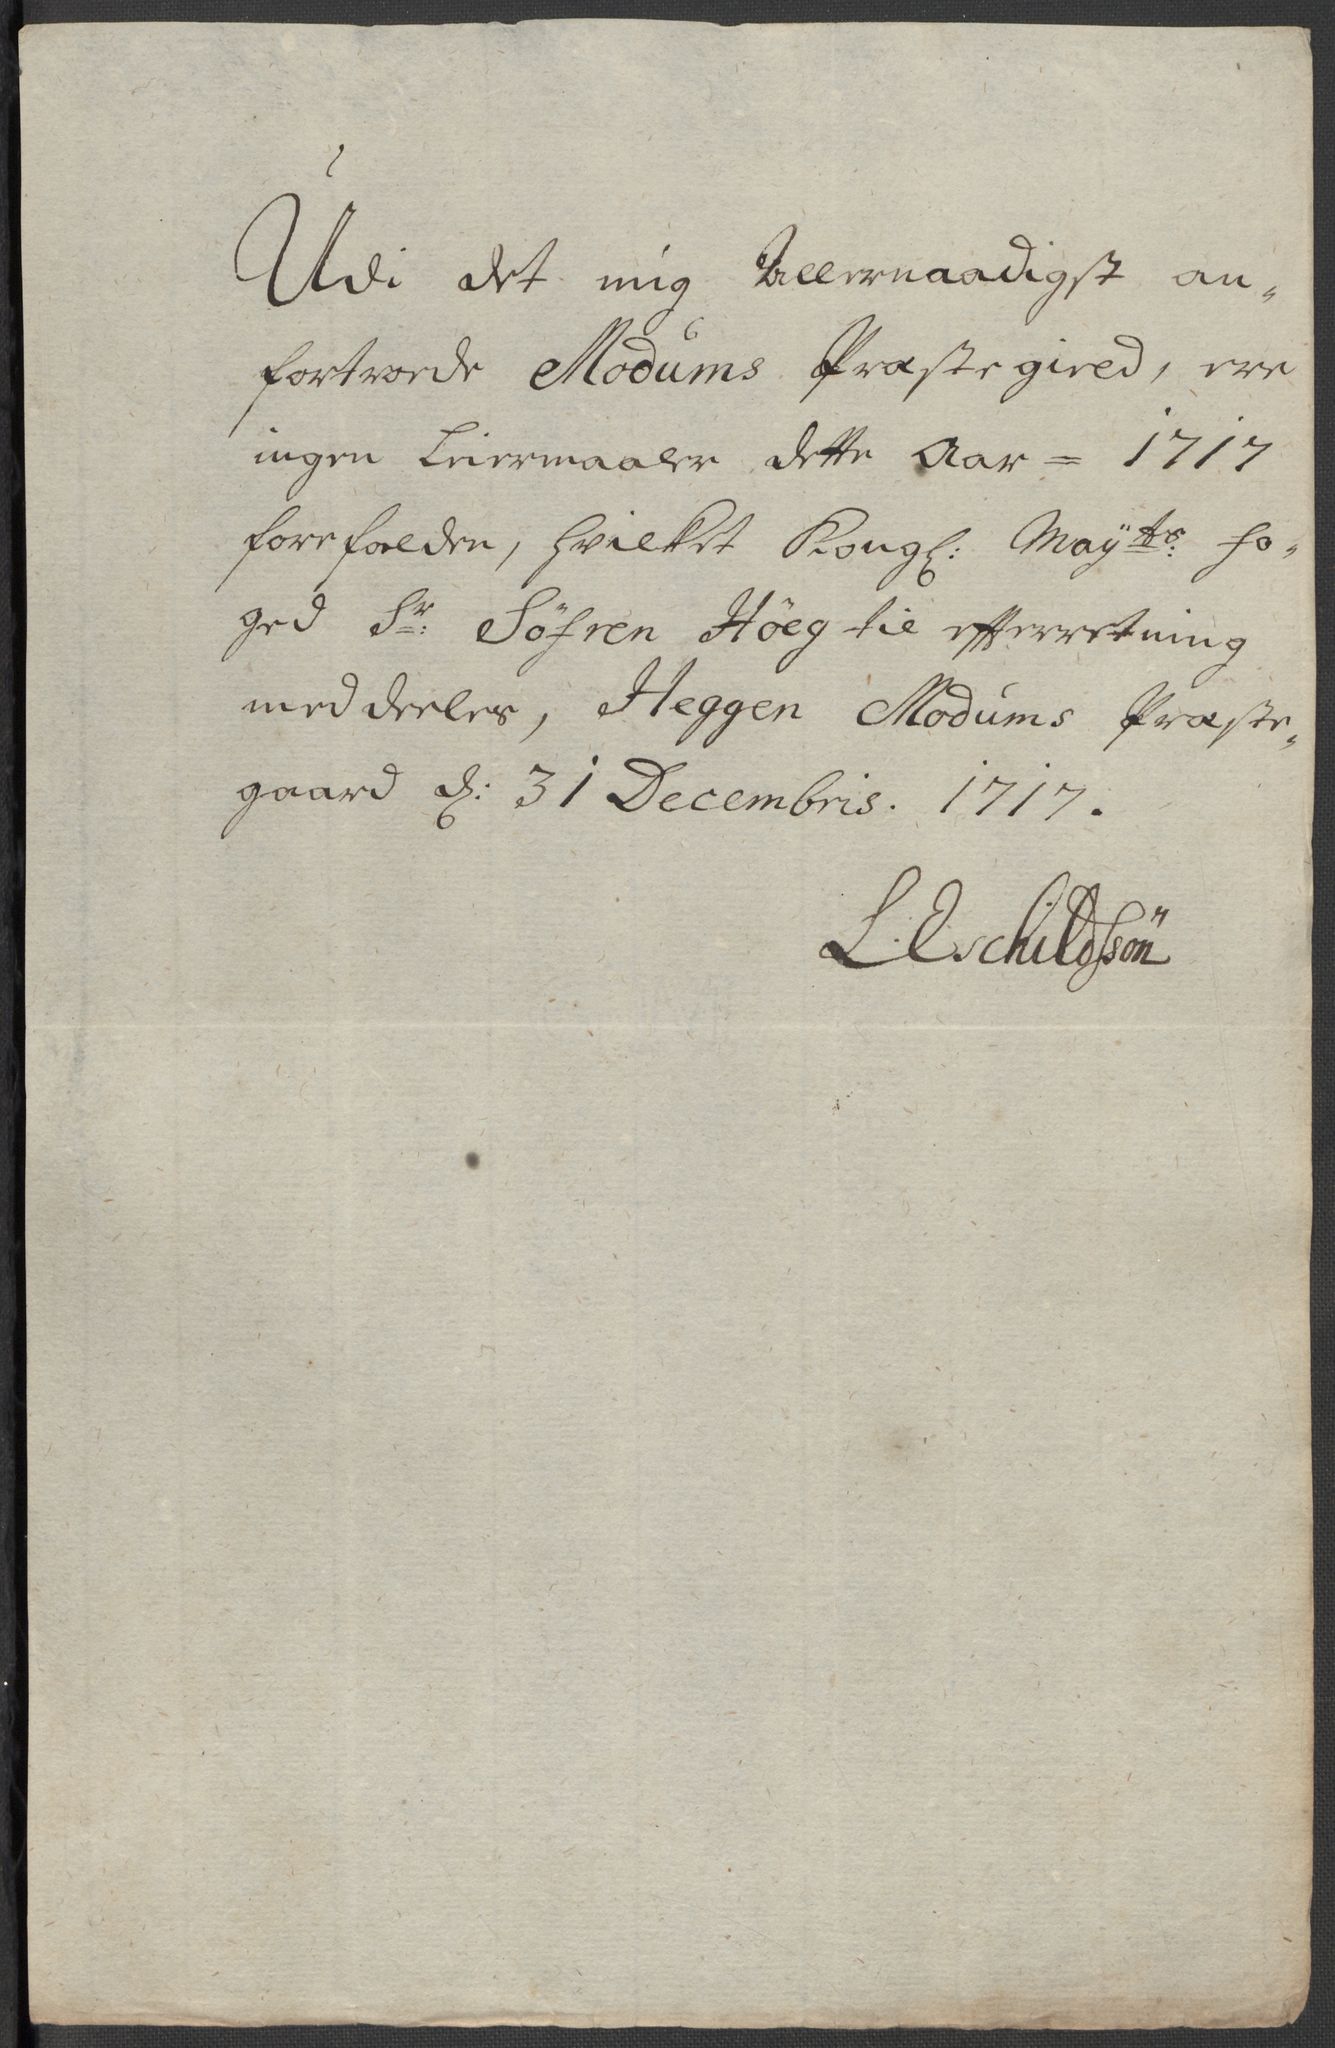 Udi det mig Allernaadigst an-
fortroede Modums Præstegield, ere
ingen Leiermaaler dette Aar = 1717
forefalden, hvilket Kongl: Mayts: fo-
ged Sr: Söfren Höeg til efterretning
meddeeles, Heggen Modums Præste-
gaard d: 31 Decembris. 1717.
L. Eschildssön